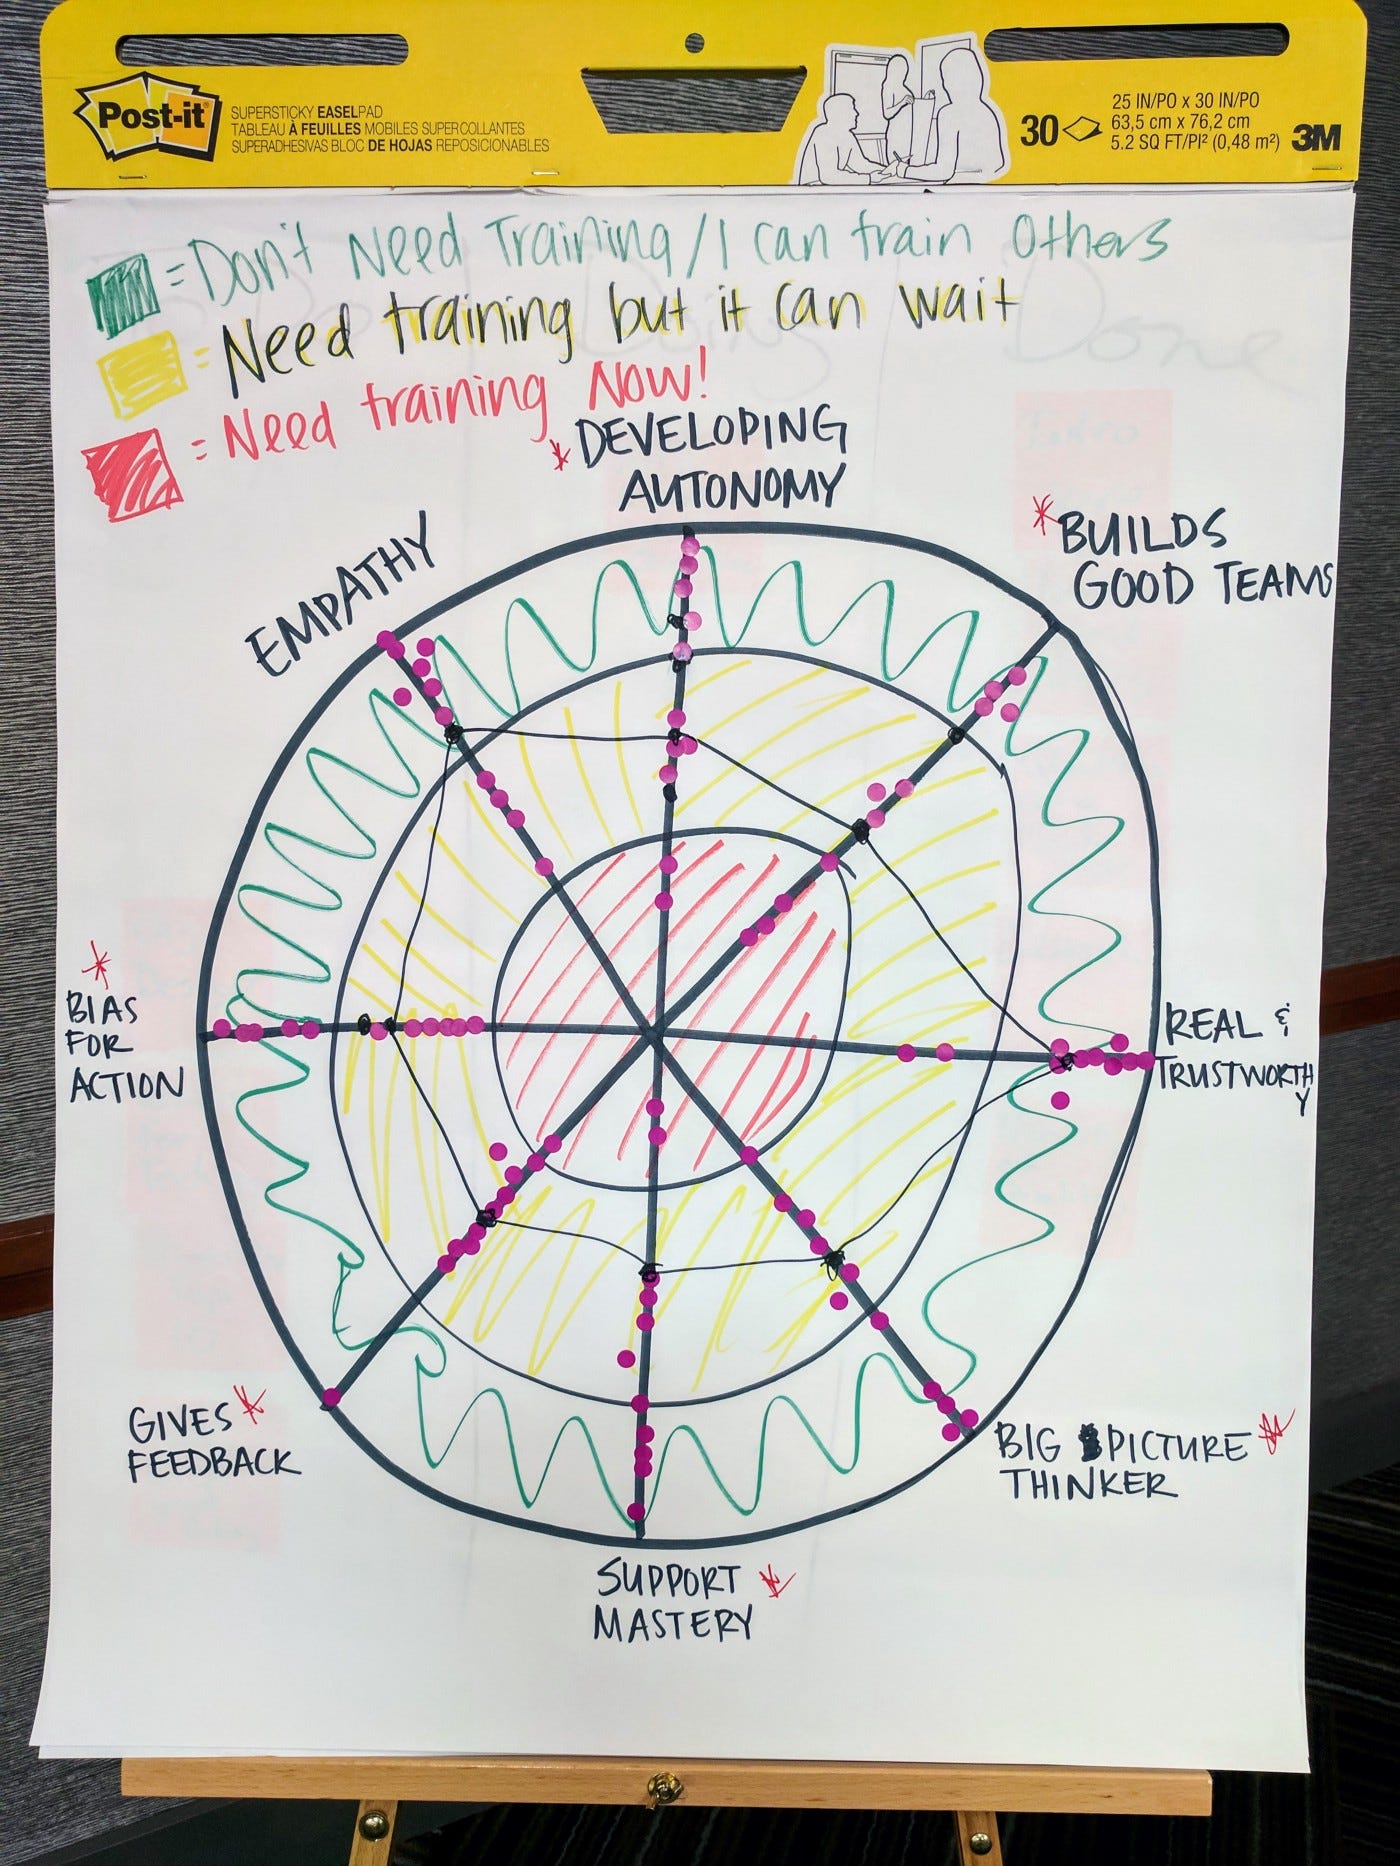 Post-it
SUPERSTICKY EASELPAD
TABLEAU À FEUILLES MOBILES SUPERCOLLANTES
SUPERADHESIVAS BLOC DE HOJAS REPOSICIONABLES
30
25 IN/PO x 30 IN/PO
63,5 cm x 76,2 cm
5.2 SQ FT/PI² (0,48 m²)
3M
= Don't Need Training/I can train Others
= Need training but it can wait
= Need training Now!
Doing
Done
* DEVELOPING
AUTONOMY
* BUILDS
GOOD TEAMS
EMPATHY
*
BIAS
FOR
ACTION
REAL &
TRUSTWORTHY
GIVES *
FEEDBACK
BIG PICTURE *
THINKER
SUPPORT *
MASTERY